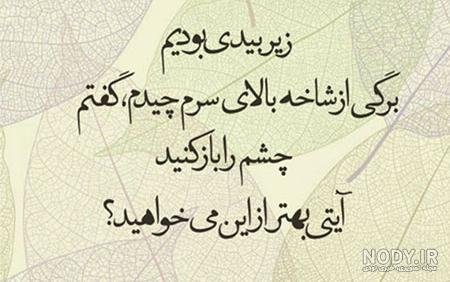 زیر بیدی بودیم
برگی از شاخه بالای سرم چیدم، گفتم
چشم را باز کنید
آیتی بهتر از این می خواهید؟
NODY.IR